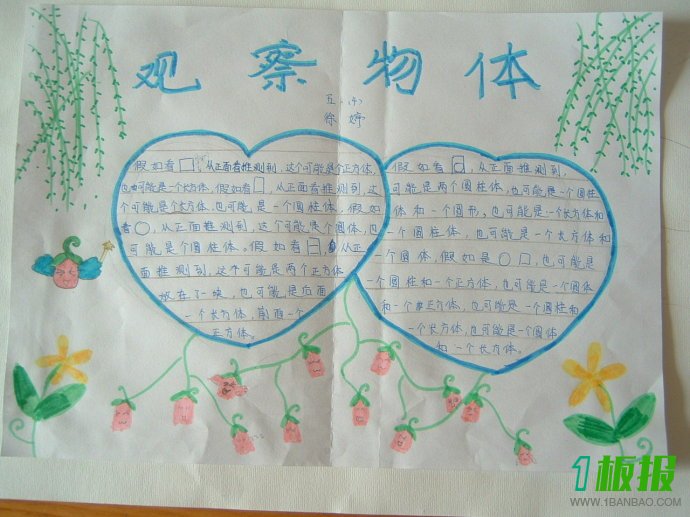 观察物体
五、(4)
徐婷
假如看□，从正面看推测到，这个可能是个正方体，
也可能是一个长方体，假如看□，从正面看推测到，这
个可能是个长方体，也可能是一个圆柱体，假如
看○，从正面推测到，这个可能是圆体，也
可能是个圆柱体。假如看日，从正
面推测到，这个可能是两个正方体
放在了一块，也可能是后面
一个长方体，前面一个
正方体。
假如看，从正面推测到，
可能是两个圆柱体，也可能是一个圆柱
体和一个圆形。也可能是一个长方体和
一个圆柱体，也可能是一个长方体和
一个圆体，假如是○□，也可能是
一个圆柱和一个正方体，也可能是一个圆体
和一个正方体，也可能是一个圆柱和
一个长方体，也可能是一个圆体
和一个长方体。
1板报
WWW.1BANBAO.COM